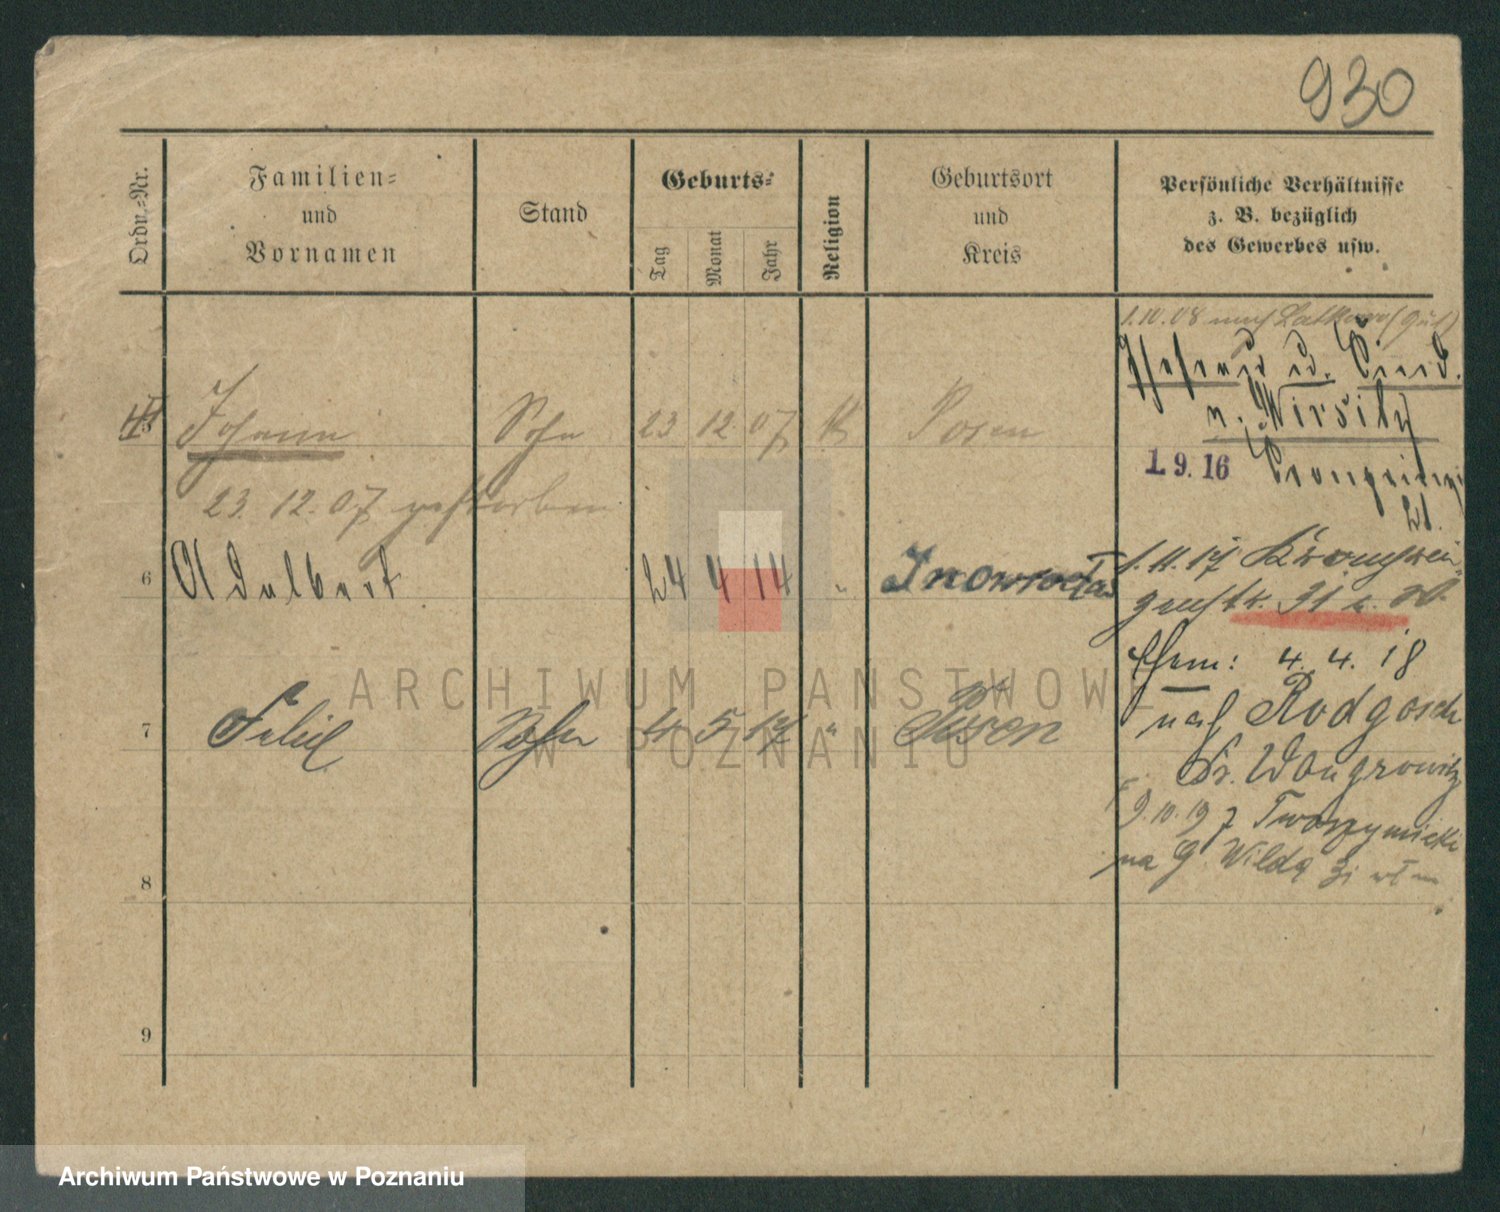 930
Ordn.-Nr.
Familien-
und
Vornamen
Stand
Geburts-
Tag
Monat
Jahr
Religion
Geburtsort
und
Kreis
Persönliche Verhältnisse
z. B. bezüglich
des Gewerbes usw.
1.10.08 nach Latkowo (Gut)
Johann Sohn 23 12 07 K Posen
n. Wirsitz
1. 9. 16
23. 12. 07 gestorben
6 Adalbert 24 4 14 " Inowrocław
1.11.17
31
Ehem: 4. 4. 18
nach Rodgosch
Kr. Wongrowitz
7 Felix Sohn 5 17 " Posen
9.10.19 z
na G. Wilda 31
8
9
ARCHIWUM PAŃSTWOWE
W POZNANIU
Archiwum Państwowe w Poznaniu